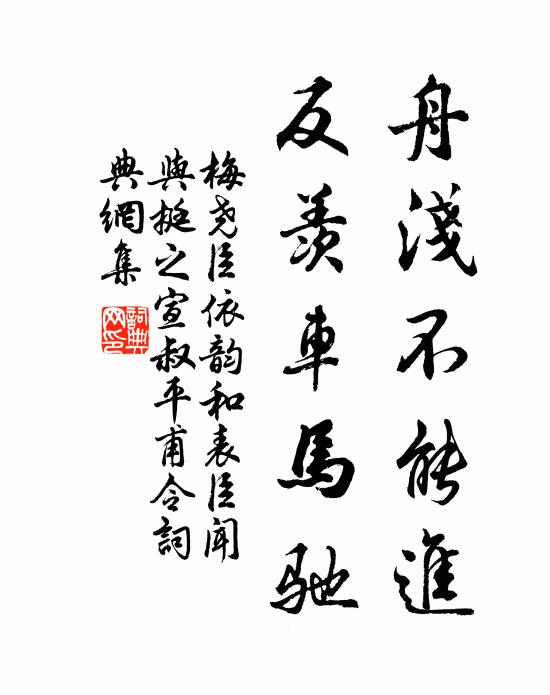 舟淺不能進
反羨車馬馳
梅堯臣依韵和表臣聞
與挺之宣叔平甫令詞
典網集
詞典
网印